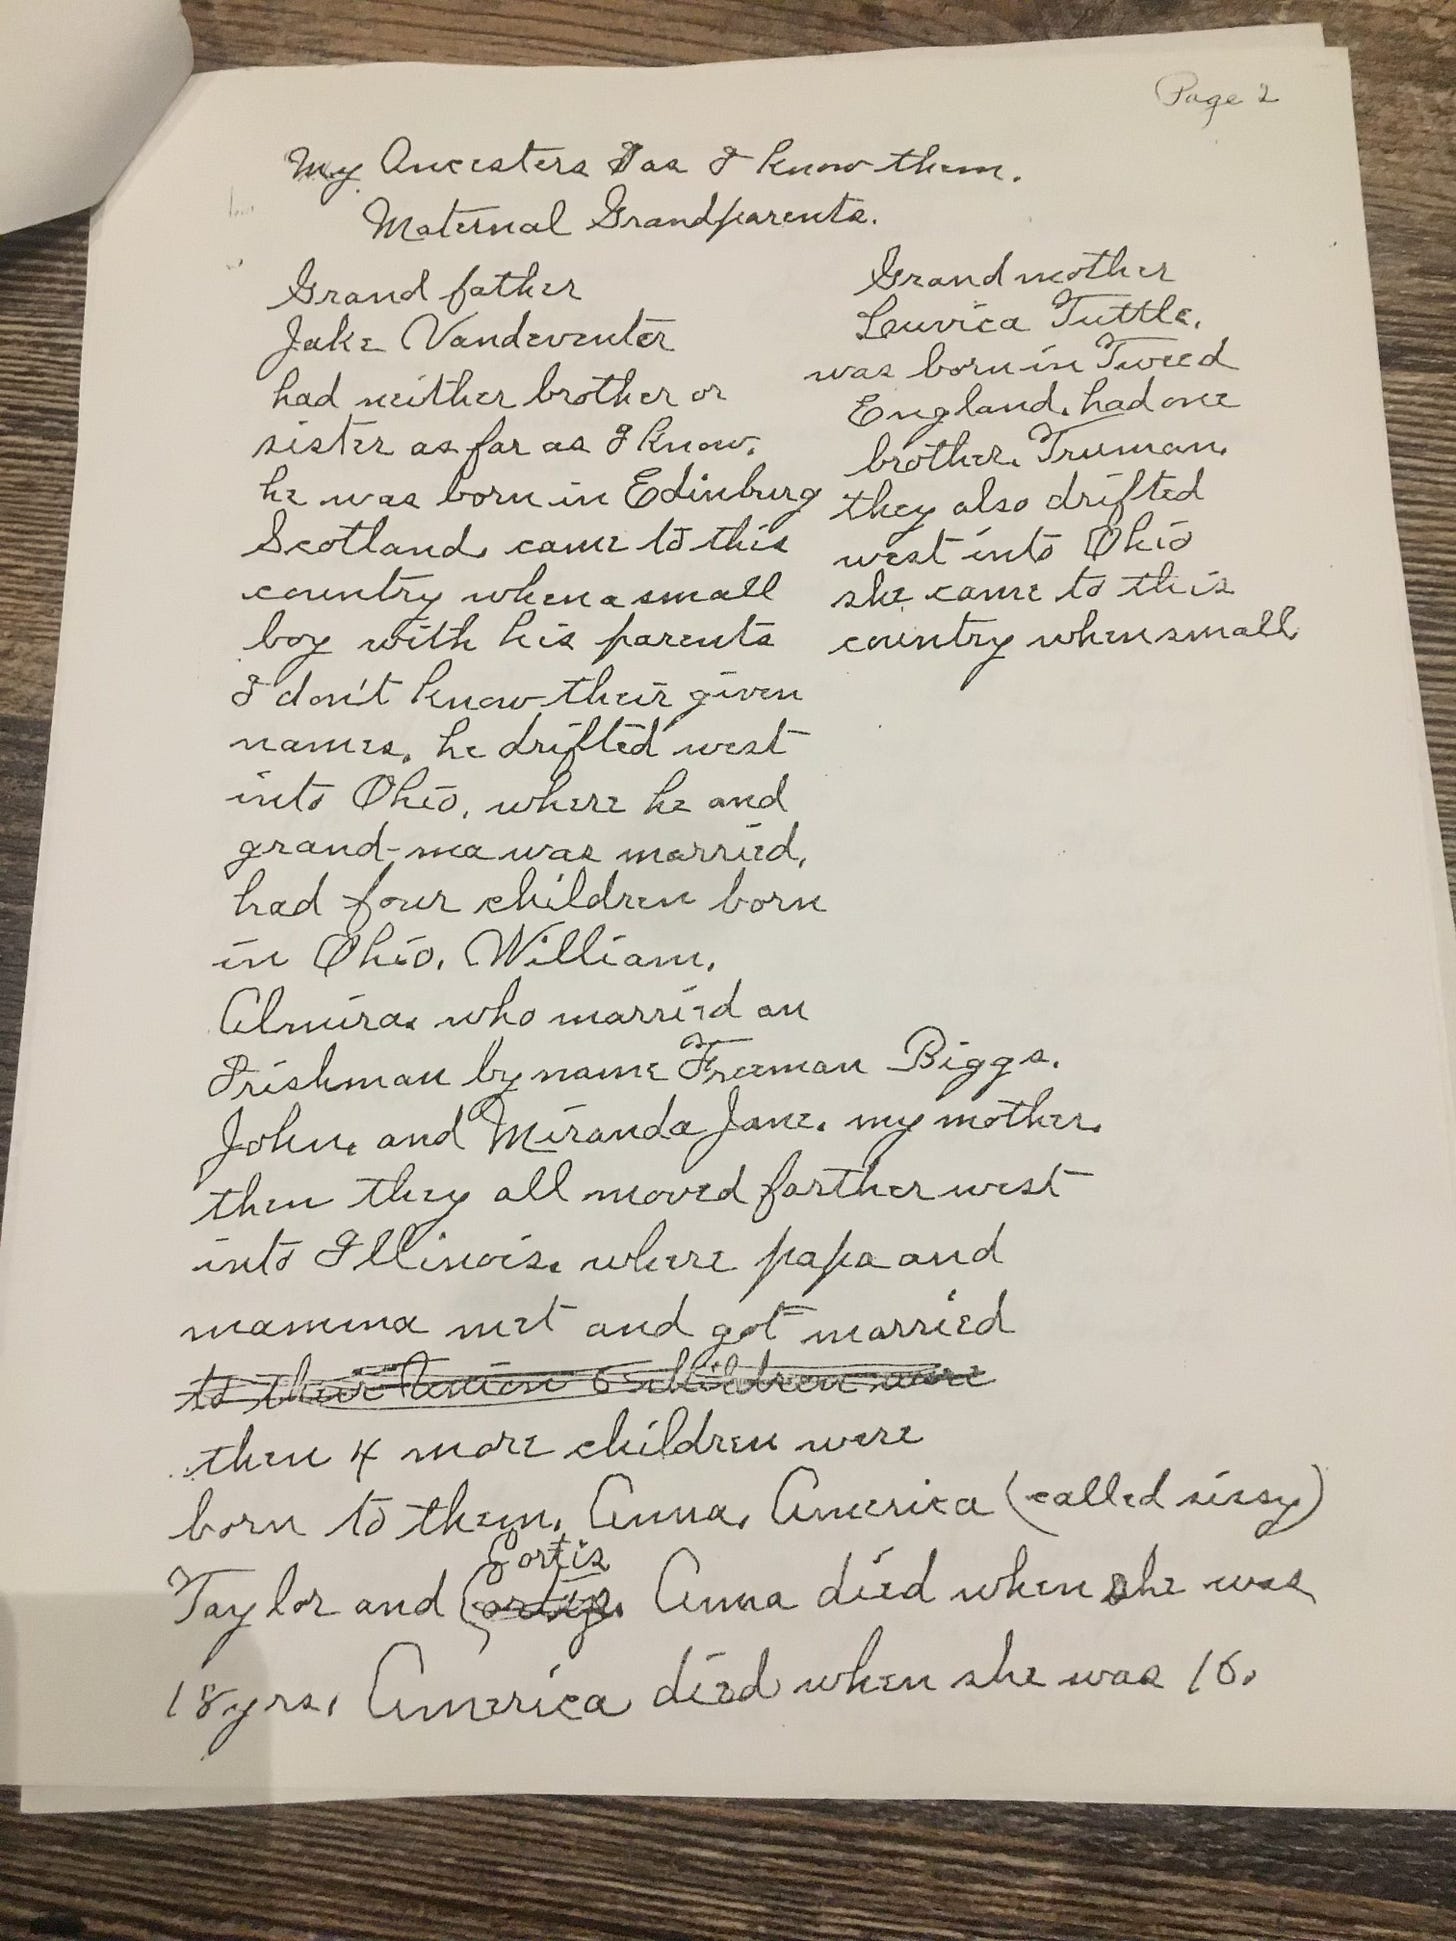 Page 2
My Ancesters as I know them.
Maternal Grandparents.
Grand father
Jake Vandeventer
had neither brother or
sister as far as I know.
he was born in Edinburg
Scotland, came to this
country when a small
boy with his parents
I don't know their given
names. he drifted west
into Ohio, where he and
grand-ma was married,
had four children born
in Ohio. William,
Almira, who married an
Irishman by name Freeman Biggs.
John, and Miranda Jane. my mother.
Grand mother
Leuvica Tuttle.
was born in Tweed
England. had one
brother. Truman.
they also drifted
west into Ohio
she came to this
country when small.
then they all moved farther west
into Illinois. where papa and
mamma met and got married
to their Union 6 children were
then 4 more children were
born to them. Anna, America (called sissy)
Cortis
Taylor and Anna died when she was
18 yrs. America died when she was 16.